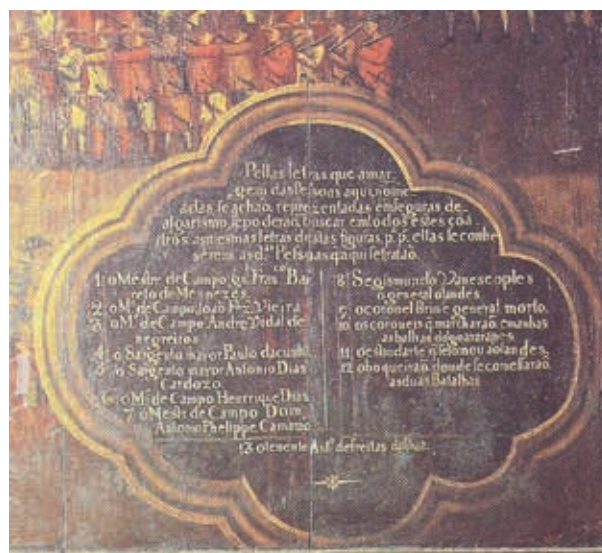 Pellas letras que amar_
gem das pesoas aqui nome_
adas se achaõ, reprezentadas em feguras de_
algarismo, se poderaõ, buscar em todos estes coa_
dros; as mesmas letras destas figuras, p. p. ellas se conhe_
serem as d.as Pessoas q aqui se trataõ.
1 o Mestre de Campo g.l Fran.co Ba_
reto de Menezes.
2 o M.e de Campo Joaõ Frz Vieira
3 o M.e de Campo Andre Vidal de
negreiros
4 o Sargento mayor Paulo dacunha
5 o Sargento mayor Antonio Dias
Cardozo
6 o M.e de Campo Henrrique Dias
7 o Mestre de Campo Dom
Antonio Phelippe Camaraõ
8 Segismundo Vanescoples
o general olandes
9 o coronel Brinc general morto.
10 os coroneis q marcharaõ em anbas
as balhas dos gararapes
11 o estandarte q se tomou ao olandes
12 o boqueiraõ donde se comessaraõ
as duas Batalhas
13 o tenente Ant.o de freitas da silva.